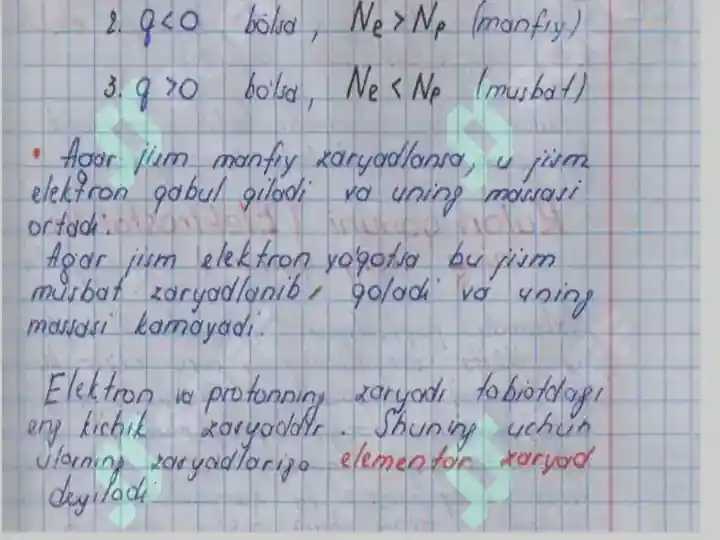 2. q<0 bo'lsa, Ne > Np (manfiy)
3. q>0 bo'lsa, Ne < Np (musbat)
• Agar jism manfiy zaryadlansa, u jism
elektron qabul qiladi va uning massasi
ortadi.
Agar jism elektron yo'qotsa bu jism
musbat zaryadlanib, qoladi va uning
massasi kamayadi.
Elektron va protonning zaryadi tabiatdagi
eng kichik zaryaddir. Shuning uchun
ularning zaryadlariga elementar zaryad
deyiladi